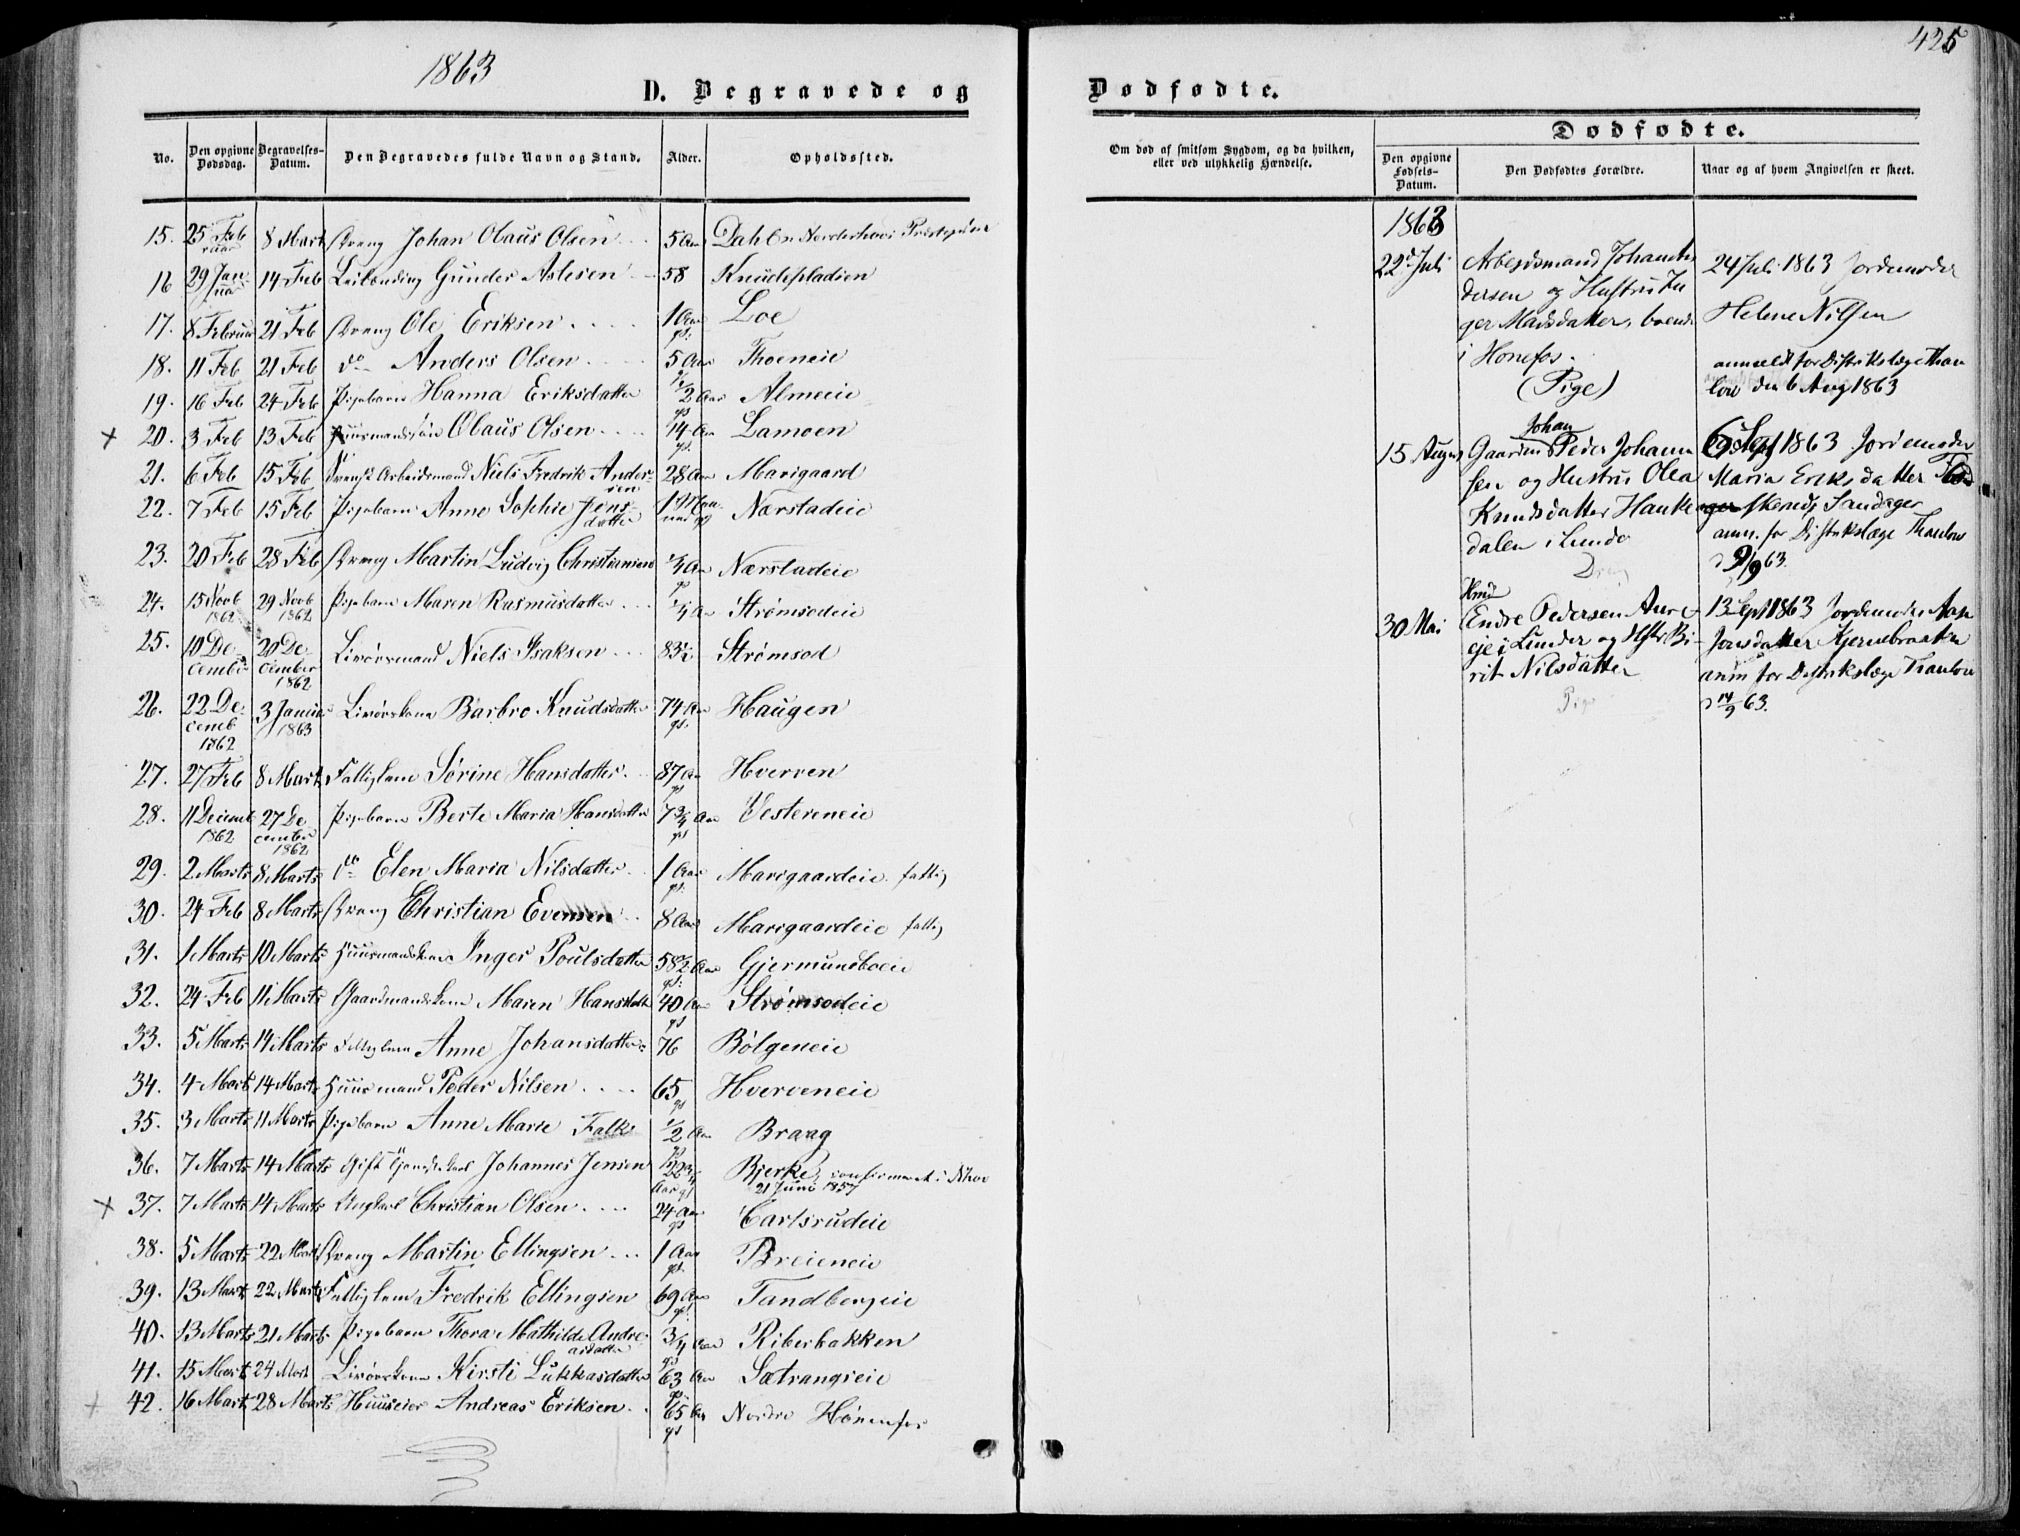 1863
425
D. Begravede og
Dødfødte.
No.
Den opgivne Dødsdag.
Begravelses-Datum.
Den Begravedes fulde Navn og Stand.
Alder.
Opholdssted.
Om død af smitsom Sygdom, og da hvilken, eller ved ulykkelig Hændelse.
Dødfødte.
Den opgivne Fødsels-Datum.
Den Dødfødtes Forældre.
Naar og af hvem Angivelsen er skeet.
15. 25 Februar 8 Mart Dreng Johan Olaus Olsen 5 Aar Dahlen Norderhovs
16 29 Januar 14 Feb Gunder Aslesen 58 Knudspladsen
17. 8 Februar 21 Feb Dreng Ole Eriksen 1 Aar gl. Loe
18. 11 Feb 21 Feb do Anders Olsen 5 Aar Thoeneie
19. 16 Feb 24 Feb Pigebarn Hanna Eriksdatter 1/2 Aar gl Almeie
+ 20. 3 Feb 13 Feb Huusmandssøn Olaus Olsen 14 Aar gl. Lamoen
21. 6 Feb 15 Feb Svensk Arbeidsmand Niels Fredrik Andersen 28 Aar Marigaard
22. 7 Feb 15 Feb Pigebarn Anne Sophie Jensdatter 1 Maaned gl Nærstadeie
23. 20 Feb 28 Feb Dreng Martin Ludvig Christiansen 1/4 Aar gl Nærstadeie
24. 15 Novb 1862 29 Novb 1862 Pigebarn Maren Rasmusdatter 1/4 Aar Strømsodeie
25. 10 December 20 December 1862 Livørsmand Niels Isaksen 83 1/2 Strømsod
26. 22 Decemb 1862 3 Januar 1863 Livørskone Barbro Knudsdatter 74 Aar gl. Haugen
27. 27 Feb 8 Mart Fattiglem Sørine Hansdatter 87 Aar gl Hverven
28. 11 Decemb 1862 27 December 1862 Pigebarn Berte Maria Hansdatter 7 3/4 Aar gl Vesterneie
29. 2 Marts 8 Marts do Elen Maria Nilsdatter 1 Aar gl. Marigaardeie fattig
30. 24 Feb 8 Marts Dreng Christian Evensen 8 Aar Marigaardeie fattig
31. 1 Marts 10 Marts Huusmandskone Inger Poulsdatter 58 1/2 Aar gl. Gjermundboeie
32. 24 Feb 11 Marts Gaardmandskone Maren Hansdatter 40 Aar gl Strømsodeie
33. 5 Marts 14 Marts Fattiglem Anne Johansdatter 76 Bølgeneie
34. 4 Mart 14 Marts Huusmand Peder Nilsen 65 gl Hverveneie
35. 3 Marts 11 Marts Pigebarn Anne Marie Falk 1/2 Aar gl Braag
36. 7 Marts 14 Marts Gift Tjenestekarl Johannes Jensen 22 3/4 Aar gl Bjerke, confirmeret i 21 Juni 1857
+ 37. 7 Marts 14 Marts Ungkarl Christian Olsen 24 Aar gl Carlsrudeie
38. 5 Marts 22 Mart Dreng Martin Ellingsen 1 Aar gl. Breieneie
39. 13 Mart 22 Marts Fattiglem Fredrik Ellingsen 69 Aar gl. Tandbergeie
40. 13 Marts 21 Marts Pigebarn Thora Mathilde Andreasdatter 3/4 Aar gl Riberbakken
41. 15 Mart 24 Mart Livørskone Kirsti Lukkasdatter 63 Aar gl. Sætrangseie
+ 42. 16 Mart 28 Marts Huuseier Andreas Eriksen 65 Aar gl Nordre Hønenfos
1863
22d Juli
Arbeidsmand
dersen og Hustru In
ger Madsdatter, boende
i Hønefos.
(Pige)
24 Juli 1863 Jordemoder
Helene Nilsen
anmeldt for Distriktslæge Thau
low den 6 Aug 1863
15 August
Johan
Peder Johann
sen og Hustru Olea
Knudsdatter Hauke
dalen i Lunde
Dreng
6 Sept 1863 Jordemoder
Maria Eriksdatter
Sandager
anm. for Distriktslæge Thaulow
d 9/9 63.
30 Mai
Hmd
Endre Pedersen Aure
eje i Lunder og Hstr. Bi
rit Nilsdatter
Pige
13 Sept 1863 Jordemoder Aase
Jonsdatter Kjernebraaten
anm for Distriktslæge Thaulow
d 14/9 63.